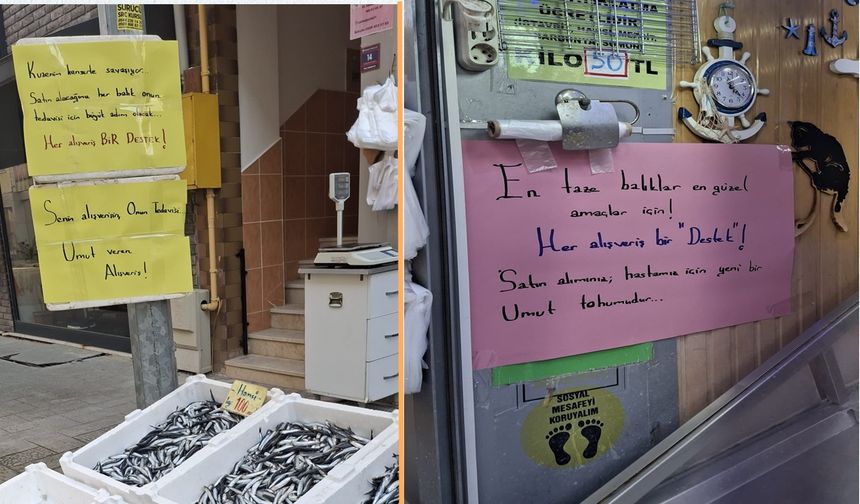 SÜRÜCÜ
SRC KURSU
Kuzenin kanserle savaşıyor...
Satın alacağına her balık onun
tedavisi için büyük adım olacak...
Her alışveriş BİR DESTEK!
Senin alışverişin, Onun Tedavisi...
Umut veren
Alışveriş!
14
Hamsi
100
ÜCRETLİDİR
KİLO 50 TL
En taze balıklar en güzel
amaçlar için!
Her alışveriş bir "Destek"!
Satın alımınız; hastamız için yeni bir
Umut tohumudur...
SOSYAL
MESAFEYİ
KORUYALIM